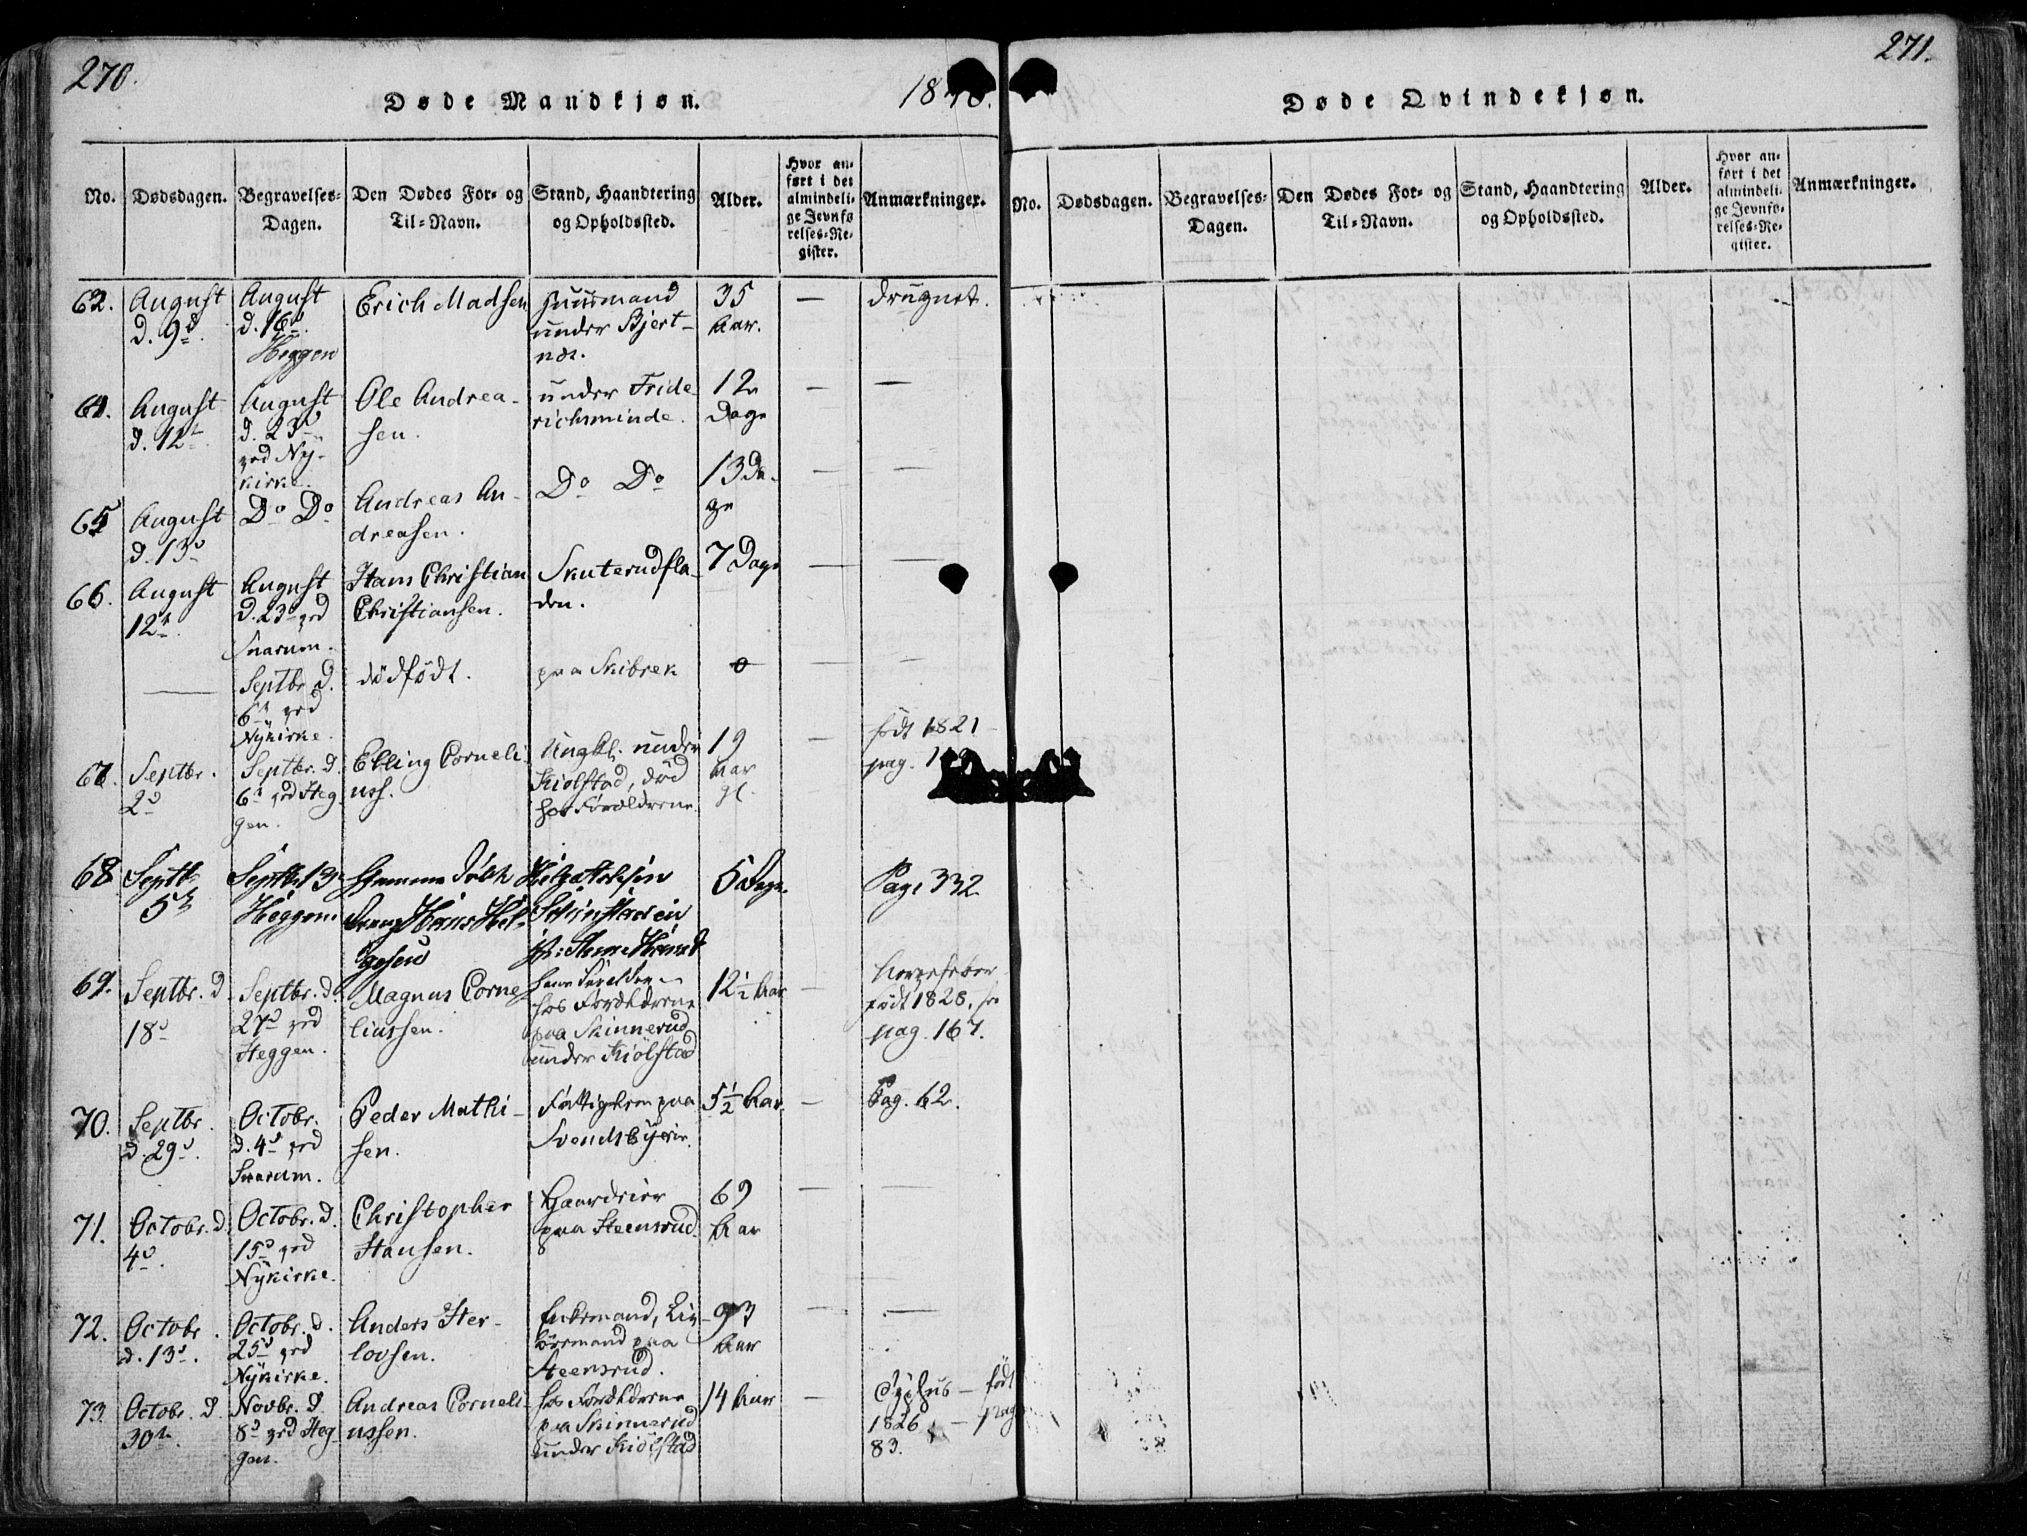 270.
Døde Mandkjøn.
1840.
No.
Dødsdagen.
Begravelses-
Dagen.
Den Dødes For- og
Til-Navn.
Stand, Haandtering
og Opholdssted.
Alder.
Hvor an-
ført i det
almindeli-
ge Jevnfø-
relses-Re-
gister.
Anmærkninger.
62.
August
d. 9d.
August
d. 16d.
Heggen
Erich Madsen
Huusmand
under Bjert-
næs.
35
Aar.
—
druknet.
64.
August
d. 12te.
August
d. 23d
ved Ny-
kirke.
Ole Andrea-
sen.
under Fride-
richsminde.
12
Dage
—
—
65
August
d. 13d
Do Do
Andreas An-
dreasen.
Do Do
13 Da-
ge
—
—
66.
August
12te.
August
d. 23d ved
Snarum.
Hans Christian
Christiansen.
Skuterudfla-
den.
7 Dage
—
—
—
Septbr. d.
6te ved
Nykirke.
dødfødt.
paa Skibrek
0
—
—
67.
Septbr.
2d
Septbr. d.
6te ved Heg-
gen.
Elling Corneli-
uss.
Ungkl. under
Kiølstad, død
hos Forældrene.
19
Aar
gl.
—
født 1821
pag.
68
Septb.
5te
Septbr. 13
Heggen
Hans Hel-
gesen
5 Dage.
Pag. 332
69.
Septbr. d.
18d
Septbr. d.
27d ved
Heggen.
Magnus Corne-
liussen.
hos Forældrene
paa Skinnerud
under Kiølstad
12½ Aar
—
født 1828, se
pag. 167.
70.
Septbr.
d. 29d.
Octobr.
d. 4d ved
Snarum.
Peder Mathi-
sen.
Fattiglem paa
Svendsbyeie.
5½ Aar
—
Pag. 62.
71.
Octobr. d.
4d.
Octobr. d.
15d ved
Nykirke.
Christopher
Hansen.
Gaardeier
paa Steensrud.
69
Aar
—
—
72.
Octobr.
d. 13d.
Octobr. d.
25d ved
Nykirke.
Anders Her-
lovsen.
Enkemand, Liv-
øresmand paa
Steensrud.
93
Aar
—
—
73
Octobr. d.
30te.
Novbr. d.
8d ved Heg-
gen.
Andreas Corneli-
ussen.
hos Forældrene
paa Skinnerud
under Kiølstad
14 Aar
—
Typhus — født
1826, — pag.
83.
271.
Døde Qvindekjøn.
No.
Dødsdagen.
Begravelses-
Dagen.
Den Dødes For- og
Til-Navn.
Stand, Haandtering
og Opholdssted.
Alder.
Hvor an-
ført i det
almindeli-
ge Jevnfø-
relses-Re-
gister.
Anmærkninger.